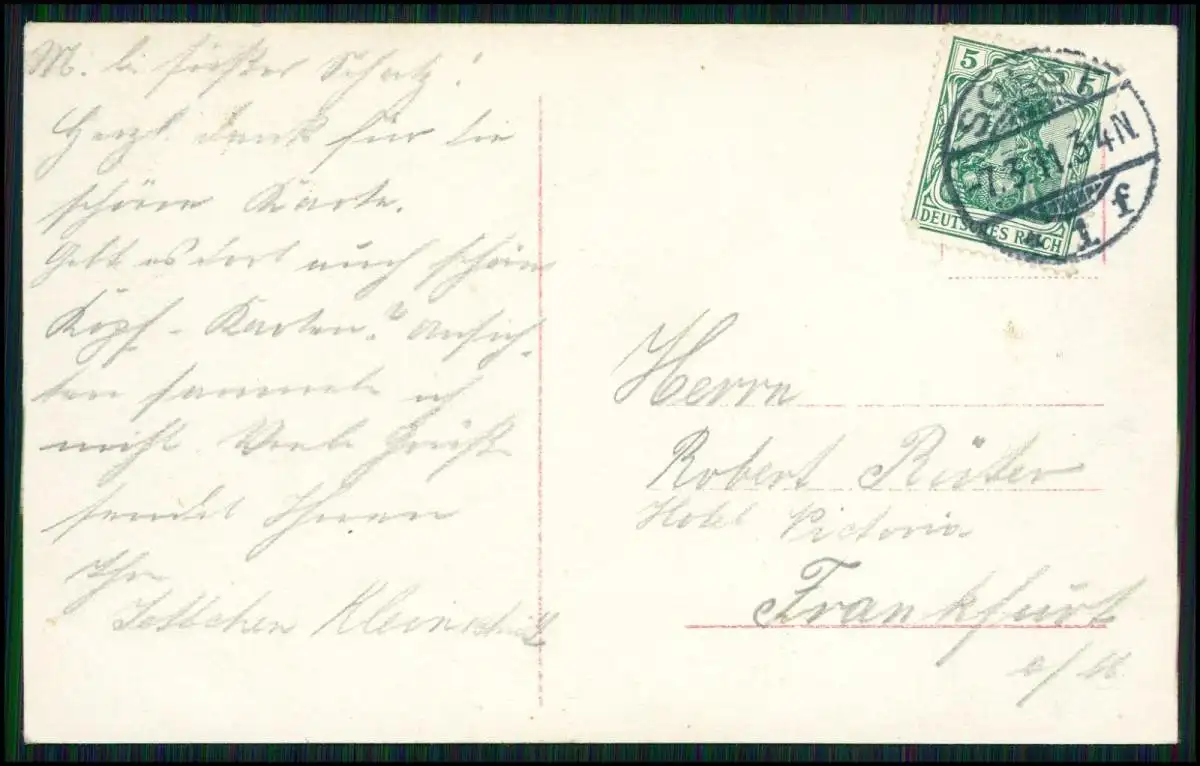 M. lb. süßer Schatz!
Herzl. Dank für die
schöne Karte.
Gebt es dort auch schöne
Kopf-Karten? Ansich-
ten sammele ich
nicht. Viele Grüße
sendet Ihnen
Ihr
Kleinschmidt
5 5
DEUTSCHES REICH
-7.3.11 3-4N
1 f
Herrn
Robert Rüter
Hotel Victoria
Frankfurt
a/M.